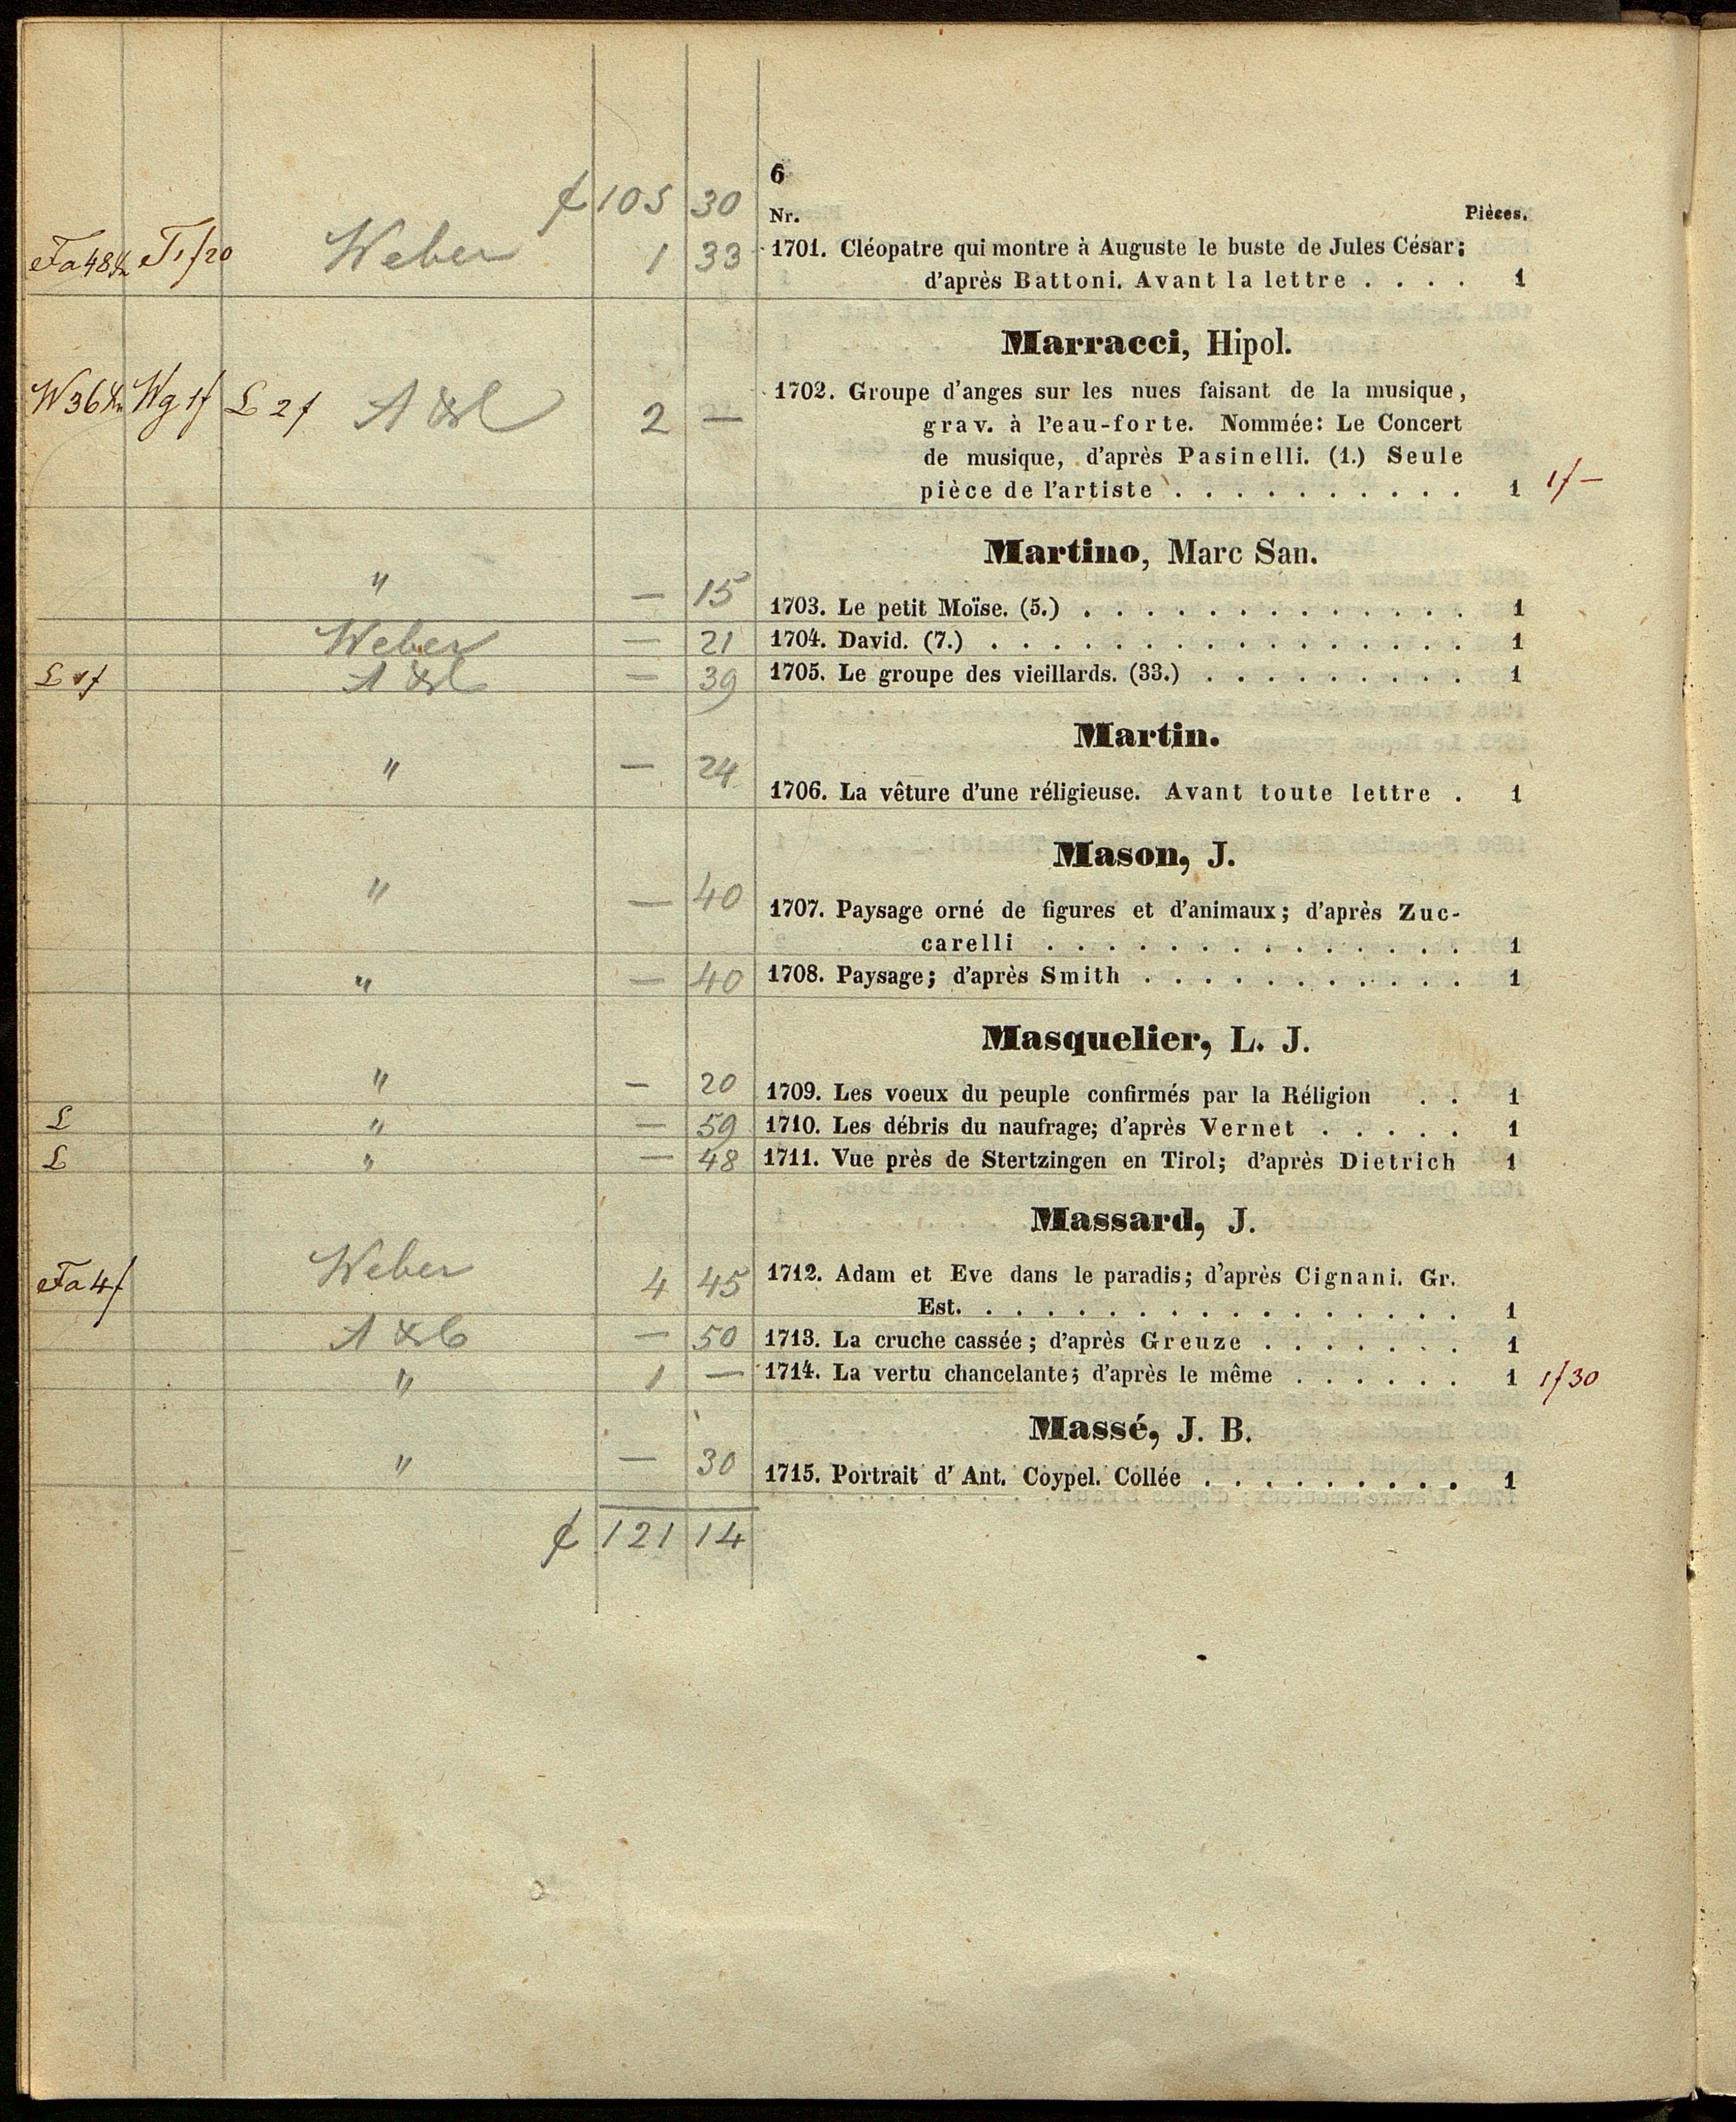 6
f 105 30
Nr. Pièces.
Fa 48 T 1f20 Weber 1 33 1701. Cléopatre qui montre à Auguste le buste de Jules César;
d'après Battoni. Avant la lettre . . . . 1
Marracci, Hipol.
W 36 Wg 1f L 2f 2 — 1702. Groupe d'anges sur les nues faisant de la musique,
grav. à l'eau-forte. Nommée: Le Concert
de musique, d'après Pasinelli. (1.) Seule
pièce de l'artiste . . . . . . . . . . 1 1f —
Martino, Marc San.
" — 15 1703. Le petit Moïse. (5.) . . . . . . . . . . . . . 1
Weber — 21 1704. David. (7.) . . . . . . . . . . . . . . . . 1
L — 39 1705. Le groupe des vieillards. (33.) . . . . . . . . . 1
Martin.
" — 24 1706. La vêture d'une réligieuse. Avant toute lettre . 1
Mason, J.
" — 40 1707. Paysage orné de figures et d'animaux; d'après Zuc-
carelli . . . . . . . . . . . . . . 1
" — 40 1708. Paysage; d'après Smith . . . . . . . . . . . 1
Masquelier, L. J.
" — 20 1709. Les voeux du peuple confirmés par la Réligion . . 1
L " — 59 1710. Les débris du naufrage; d'après Vernet . . . . . 1
L " — 48 1711. Vue près de Stertzingen en Tirol; d'après Dietrich 1
Massard, J.
Fa 4f Weber 4 45 1712. Adam et Eve dans le paradis; d'après Cignani. Gr.
Est. . . . . . . . . . . . . . . . . . 1
— 50 1713. La cruche cassée; d'après Greuze . . . . . . . 1
" 1 — 1714. La vertu chancelante; d'après le même . . . . . . 1 1f30
Massé, J. B.
" — 30 1715. Portrait d' Ant. Coypel. Collée . . . . . . . . . 1
f 121 14